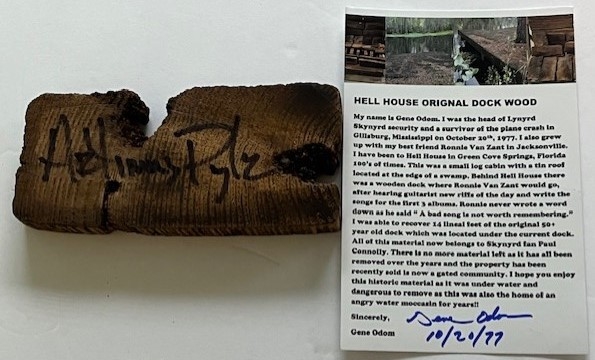 Artimus Pyle
HELL HOUSE ORIGNAL DOCK WOOD
My name is Gene Odom. I was the head of Lynyrd
Skynyrd security and a survivor of the plane crash in
Gillsburg, Mississippi on October 20th, 1977. I also grew
up with my best friend Ronnie Van Zant in Jacksonville.
I have been to Hell House in Green Cove Springs, Florida
100's of times. This was a small log cabin with a tin roof
located at the edge of a swamp. Behind Hell House there
was a wooden dock where Ronnie Van Zant would go,
after hearing guitarist new riffs of the day and write the
songs for the first 3 albums. Ronnie never wrote a word
down as he said " A bad song is not worth remembering."
I was able to recover 14 lineal feet of the original 50+
year old dock which was located under the current dock.
All of this material now belongs to Skynyrd fan Paul
Connolly. There is no more material left as it has all been
removed over the years and the property has been
recently sold is now a gated community. I hope you enjoy
this historic material as it was under water and
dangerous to remove as this was also the home of an
angry water moccasin for years!!
Sincerely, Gene Odom
Gene Odom 10/20/77